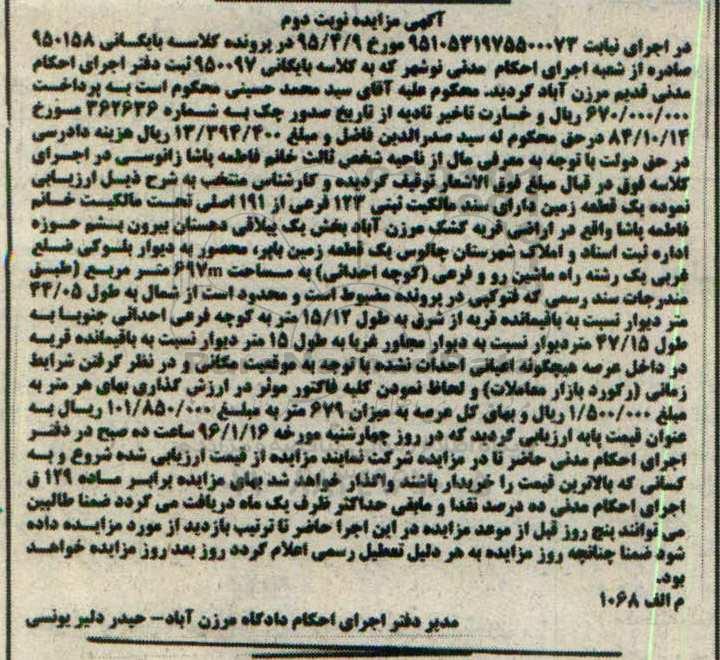 آگهی مزایده نوبت دوم
در اجرای نیابت ۹۵۱۰۵۳۱۹۷۵۵۰۰۰۷۳ مورخ ۹۵/۴/۹ در پرونده کلاسه بایگانی ۹۵۰۱۵۸
صادره از شعبه اجرای احکام مدنی نوشهر که به کلاسه بایگانی ۹۵۰۰۹۷ ثبت دفتر اجرای احکام
مدنی قدیم مرزن آباد گردید. محکوم علیه آقای سید محمد حسینی محکوم است به پرداخت
۶۷۰/۰۰۰/۰۰۰ ریال و خسارت تاخیر تادیه از تاریخ صدور چک به شماره ۳۶۲۶۳۶ مورخ
۸۴/۱۰/۱۴ در حق محکوم له سید صدرالدین فاضل و مبلغ ۱۳/۳۹۴/۴۰۰ ریال هزینه دادرسی
در حق دولت با توجه به معرفی مال از ناحیه شخص ثالث خانم فاطمه پاشا زانوسی در اجرای
کلاسه فوق در قبال مبلغ فوق الاشعار توقیف گردیده و کارشناس منتخب به شرح ذیل ارزیابی
نموده یک قطعه زمین دارای سند مالکیت ثبتی ۱۲۳ فرعی از ۱۹۱ اصلی تحت مالکیت خانم
فاطمه پاشا واقع در اراضی قریه کشک مرزن آباد بخش یک ییلاقی دهستان بیرون بشم حوزه
اداره ثبت اسناد و املاک شهرستان چالوس یک قطعه زمین بایر، محصور به دیوار بلوکی ضلع
غربی یک رشته راه ماشین رو و فرعی (کوچه احداثی) به مساحت ۶۹۷m متر مربع (طبق
مندرجات سند رسمی که فتوکپی در پرونده مضبوط است و محدود است از شمال به طول ۴۴/۰۵
متر دیوار نسبت به باقیمانده قریه از شرق به طول ۱۵/۱۲ متر به کوچه فرعی احداثی جنوبا به
طول ۴۷/۱۵ متردیوار نسبت به دیوار مجاور غربا به طول ۱۵ متر دیوار نسبت به باقیمانده قریه
در داخل عرصه هیچگونه اعیانی احداث نشده با توجه به موقعیت مکانی و در نظر گرفتن شرایط
زمانی (رکورد بازار معاملات) و لحاظ نمودن کلیه فاکتور موثر در ارزش گذاری بهای هر متر به
مبلغ ۱/۵۰۰/۰۰۰ ریال و بهای کل عرصه به میزان ۶۷۹ متر به مبلغ ۱۰۱/۸۵۰/۰۰۰ ریسال به
عنوان قیمت پایه ارزیابی گردید که در روز چهارشنبه مورخه ۹۶/۱/۱۶ ساعت ده صبح در دفتر
اجرای احکام مدنی حاضر تا در مزایده شرکت نمایند مزایده از قیمت ارزیابی شده شروع و به
کسانی که بالاترین قیمت را خریدار باشند واگذار خواهد شد بهای مزایده برابر ماده ۱۲۹ ق
اجرای احکام مدنی ده درصد نقدا و مابقی حداکثر ظرف یک ماه دریافت می گردد ضمنا طالبین
می توانند پنج روز قبل از موعد مزایده در این اجرا حاضر تا ترتیب بازدید از مورد مزایده داده
شود ضمنا چنانچه روز مزایده به هر دلیل تعطیل رسمی اعلام گردد روز بعد روز مزایده خواهد
بود.
م الف ۱۰۶۸
مدیر دفتر اجرای احکام دادگاه مرزن آباد- حیدر دلیر یونسی